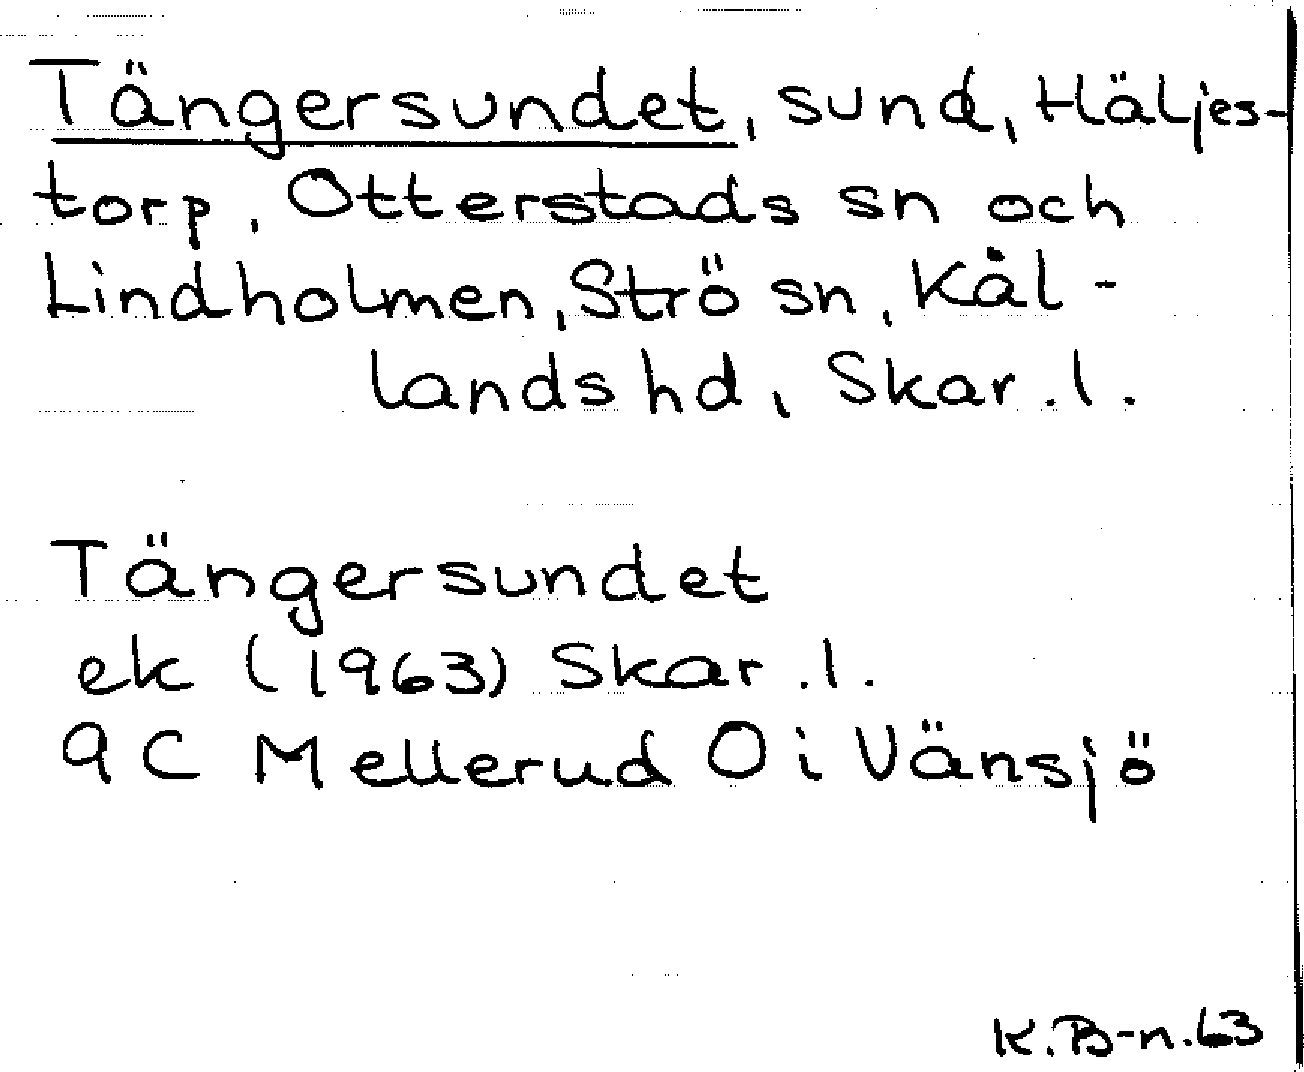 Tängersundet, sund, Häljes-
torp, Otterstads sn och
Lindholmen, Strö sn, Kål-
lands hd, Skar. l.
Tängersundet
ek (1963) Skar. l.
9C Mellerud O i Vänsjö
K.B-n.63